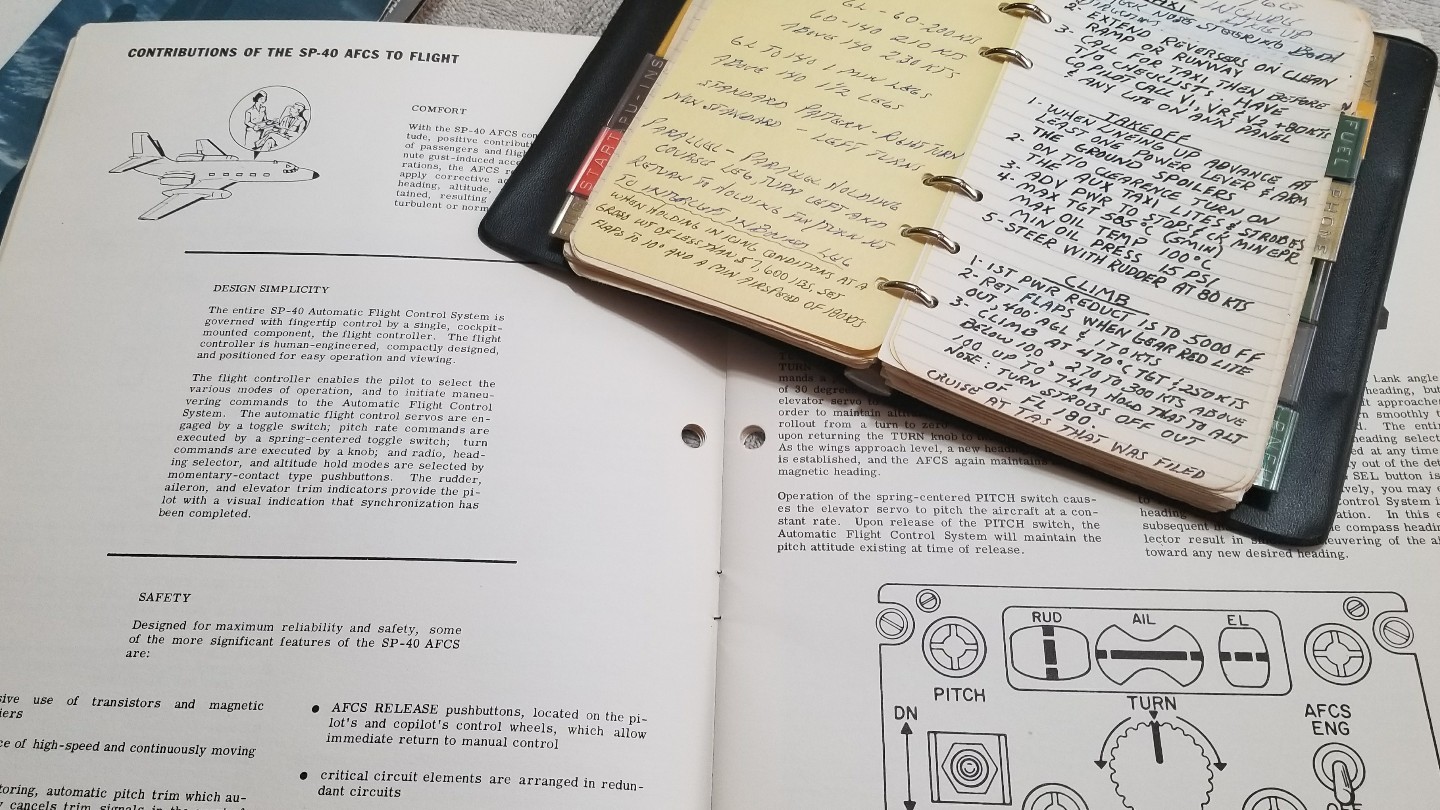 CONTRIBUTIONS OF THE SP-40 AFCS TO FLIGHT
COMFORT
With the SP-40 AFCS
tude, positive
of passengers and
nute gust-induced
rations, the AFCS
apply corrective
heading, altitude,
tained, resulting
turbulent or
DESIGN SIMPLICITY
The entire SP-40 Automatic Flight Control System is
governed with fingertip control by a single, cockpit-
mounted component, the flight controller. The flight
controller is human-engineered, compactly designed,
and positioned for easy operation and viewing.
The flight controller enables the pilot to select the
various modes of operation, and to initiate maneu-
vering commands to the Automatic Flight Control
System. The automatic flight control servos are en-
gaged by a toggle switch; pitch rate commands are
executed by a spring-centered toggle switch; turn
commands are executed by a knob; and radio, head-
ing selector, and altitude hold modes are selected by
momentary-contact type pushbuttons. The rudder,
aileron, and elevator trim indicators provide the pi-
lot with a visual indication that synchronization has
been completed.
SAFETY
Designed for maximum reliability and safety, some
of the more significant features of the SP-40 AFCS
are:
use of transistors and magnetic
of high-speed and continuously moving
automatic pitch trim which au-
cancels trim signals in the
● AFCS RELEASE pushbuttons, located on the pi-
lot's and copilot's control wheels, which allow
immediate return to manual control
● critical circuit elements are arranged in redun-
dant circuits
START
GL - 60-200 KTS
60-140 210 KTS
ABOVE 140 230 KTS
GL TO 140 1 MIN LEGS
ABOVE 140 1 1/2 LEGS
STANDARD PATTERN - RIGHT TURN
NON STANDARD - LEFT TURNS
PARALLEL - PARALLEL HOLDING
COURSE LEG, TURN LEFT AND
RETURN TO HOLDING FIX
TO INTERCEPT INBOUND LEG
WHEN HOLDING IN ICING CONDITIONS AT A
GROSS WT OF LESS THAN 37,600 LBS, SET
FLAPS TO 10° AND A MIN AIRSPEED OF 180KTS
TAXI - INCLUDE
CK NOSE STEERING BOTH
DIRECTIONS
2. EXTEND REVERSERS ON CLEAN
RAMP OR RUNWAY
3. CALL FOR TAXI THEN BEFORE
T/O CHECKLISTS - HAVE
COPILOT CALL V1, VR & V2 +80KTS
& ANY LITE ON ANN PANEL
TAKEOFF
1- WHEN LINING UP ADVANCE AT
LEAST ONE POWER LEVER & ARM
THE GROUND SPOILERS
2. ON T/O CLEARANCE TURN ON
THE AUX TAXI LITES & STROBES
3. ADV PWR TO STOPS & CK MIN EPR
4. MAX TGT 585°C (5MIN)
MAX OIL TEMP 100°C
MIN OIL PRESS 15 PSI
5- STEER WITH RUDDER AT 80 KTS
CLIMB
1- 1ST PWR REDUCT IS TO 5000 FF
2- RET FLAPS WHEN GEAR RED LITE
OUT, 400' AGL & 170 KTS
3- CLIMB AT 470°C TGT & 250 KTS
BELOW 100, > 270 TO 300 KTS ABOVE
100 UP TO .74M HOLD THAT TO ALT
NOTE: TURN STROBES OFF OUT
OF FL 180.
CRUISE AT TAS THAT WAS FILED
FUEL
of 30
elevator servo to
order to maintain
rollout from a turn to zero
upon returning the TURN knob to
As the wings approach level, a new
is established, and the AFCS again maintains
magnetic heading.
Operation of the spring-centered PITCH switch caus-
es the elevator servo to pitch the aircraft at a con-
stant rate. Upon release of the PITCH switch, the
Automatic Flight Control System will maintain the
pitch attitude existing at time of release.
angle
heading, but
approaches
smoothly
The
heading
at any time
out of the
SEL button is
you may
Control System
heading In this
subsequent compass
lector result in of the
toward any new desired heading.
RUD AIL EL
PITCH
DN
TURN
AFCS
ENG
OFF